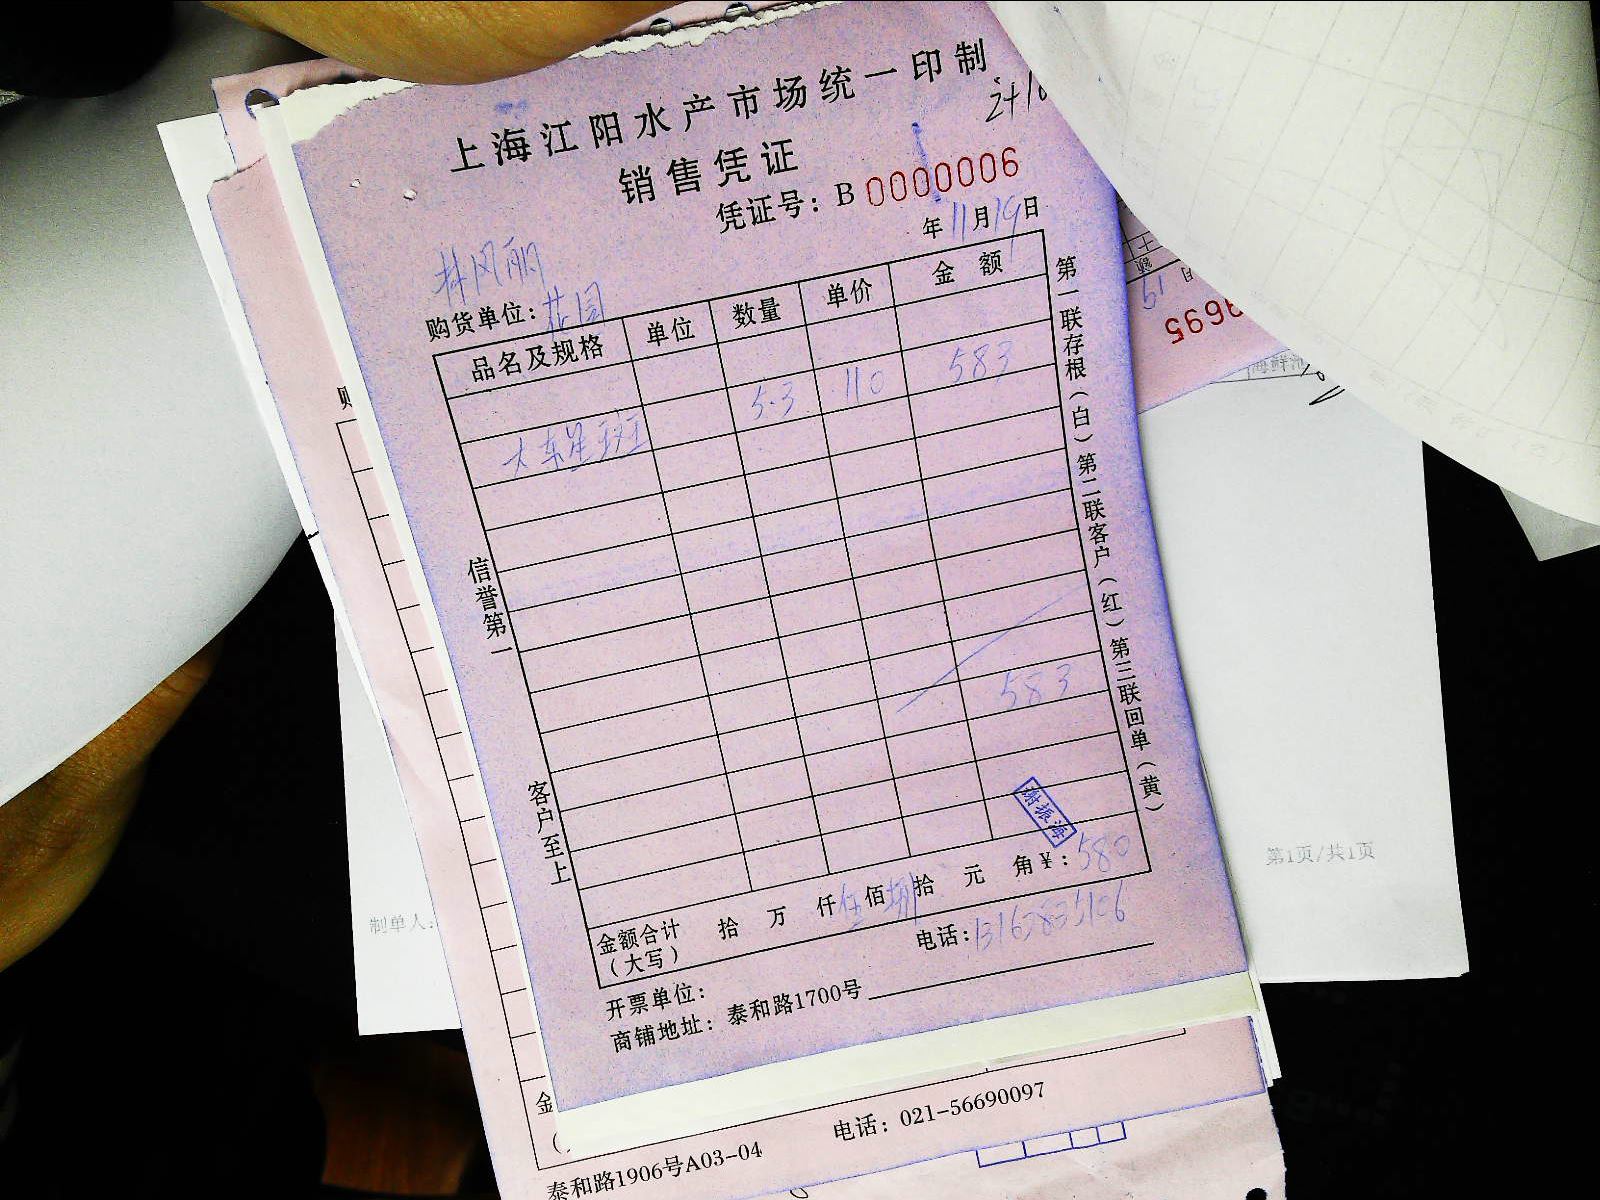 上海江阳水产市场统一印制
销售凭证
凭证号：B 0000006
年11月19日
林凤丽
购货单位：花园
品名及规格 单位 数量 单价 金额
大东星斑 5.3 110 583
583
信誉第一
客户至上
第一联存根（白）第二联客户（红）第三联回单（黄）
谢振海
金额合计 拾 万 仟 佰 拾 元 角 ¥：580
（大写）
电话：13163835106
开票单位：
商铺地址：泰和路1700号
第1页/共1页
制单人:
电话：021-56690097
泰和路1906号A03-04
9695